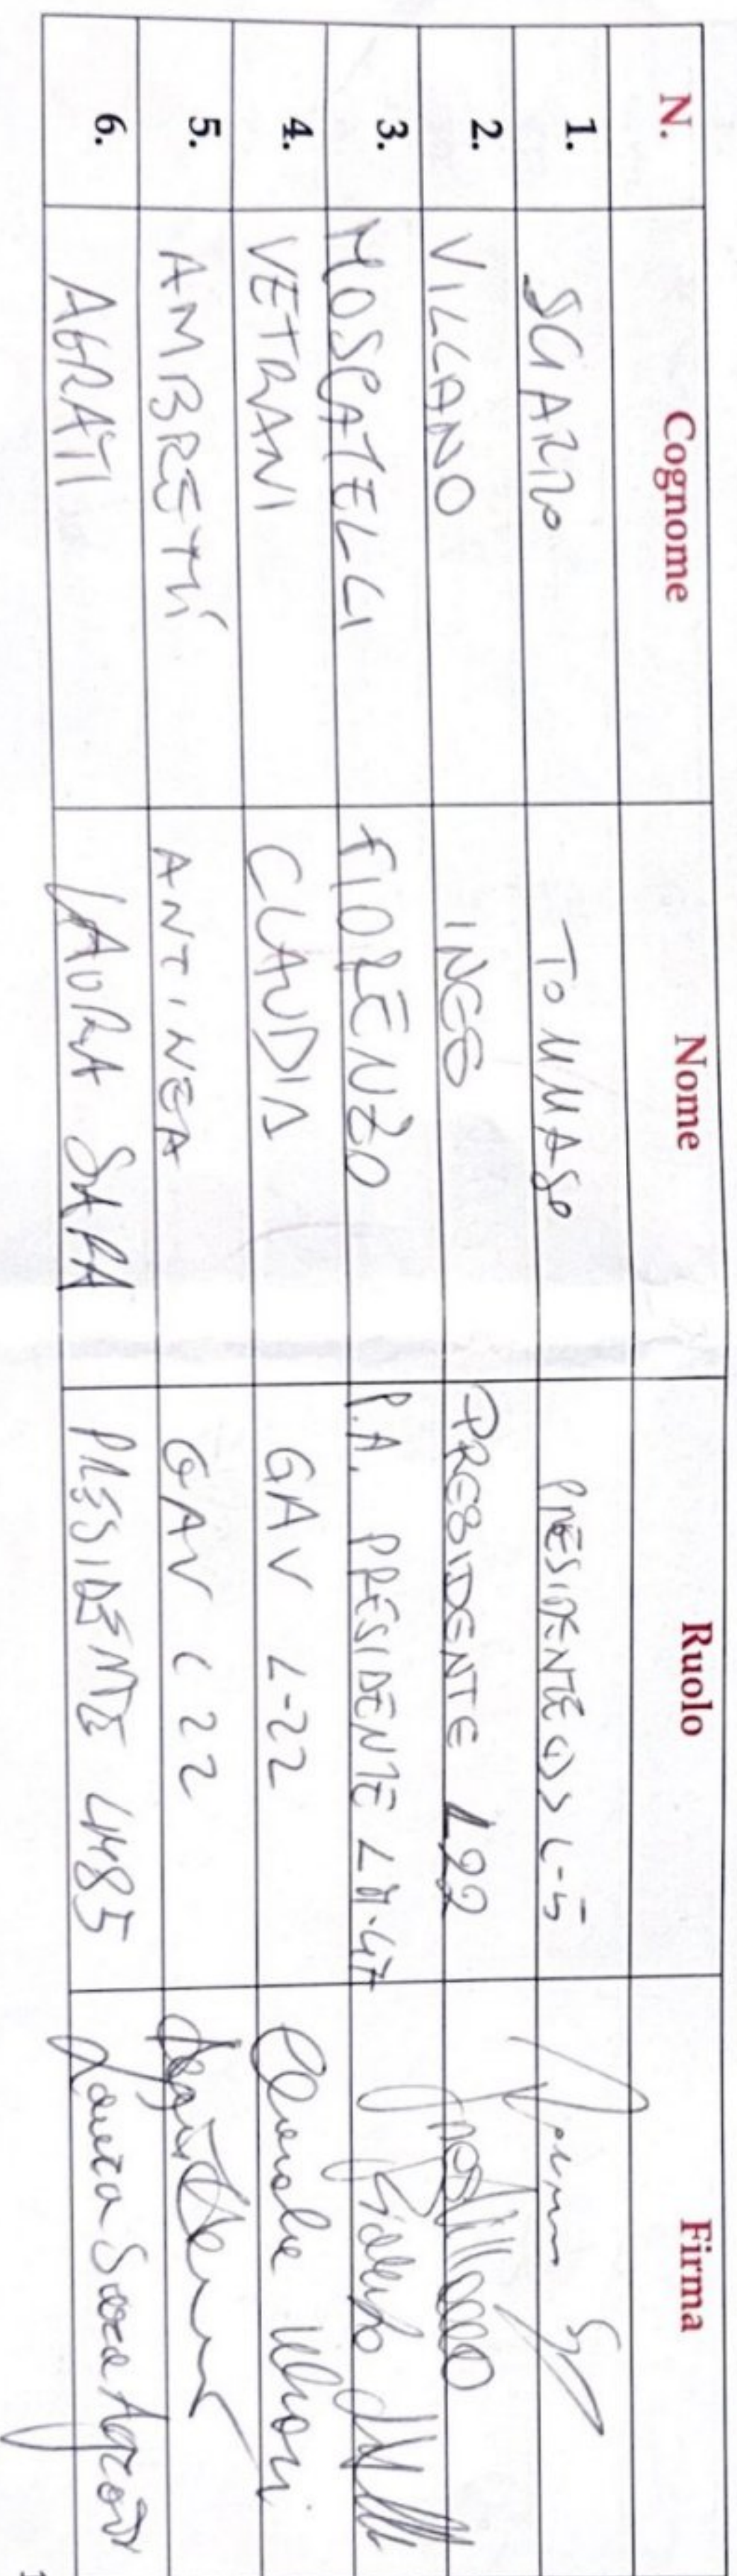 N. Cognome Nome Ruolo Firma
1. SGARRO TOMMASO PRESIDENTE L-5
2. VILLANO INES PRESIDENTE L22
3. MOSCATELLI FIORENZO P.A. PRESIDENTE LM-47
4. VETRANI CLAUDIA GAV L-22 Claudia Vetrani
5. AMBRETTI ANTINEA GAV L22
6. AGRATI LAURA SARA PRESIDENTE LM85 Laura Sara Agrati